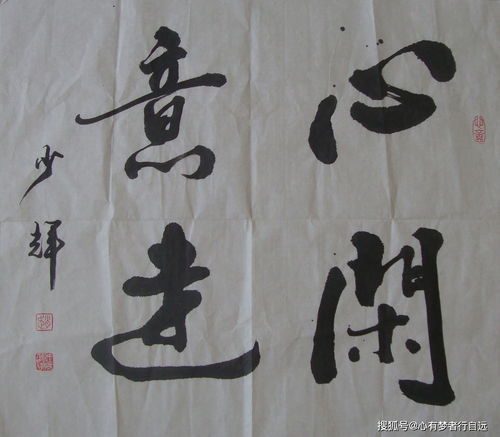 心閑
意遠
少輝
搜狐号@心有梦者行自远